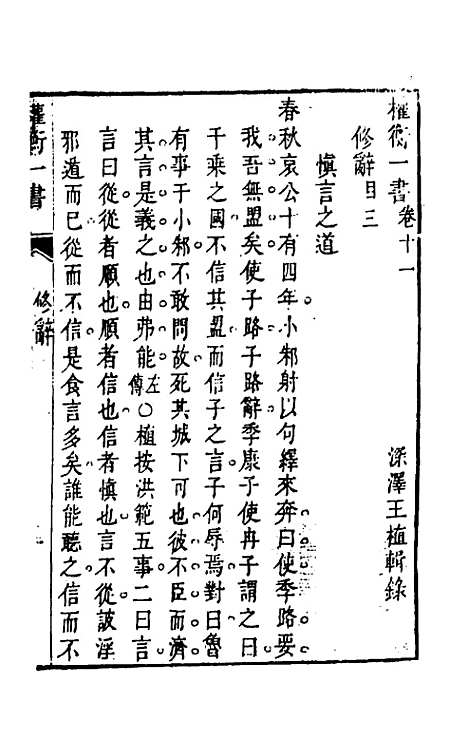 權衡一書卷十一
深澤王植輯錄
修辭目三
慎言之道
春秋哀公十有四年小邾射以句繹來奔曰使季路要
我吾無盟矣使子路子路辭季康子使冉子謂之曰
千乘之國不信其盟而信子之言子何辱焉對曰魯
有事于小邾不敢問故死其城下可也彼不臣而濟
其言是義之也由弗能左傳○植按洪範五事二曰言
言曰從從者順也順者信也信者慎也言不從詖淫
邪遁而已從而不信是食言多矣誰能聽之信而不
權衡一書
修辭
一